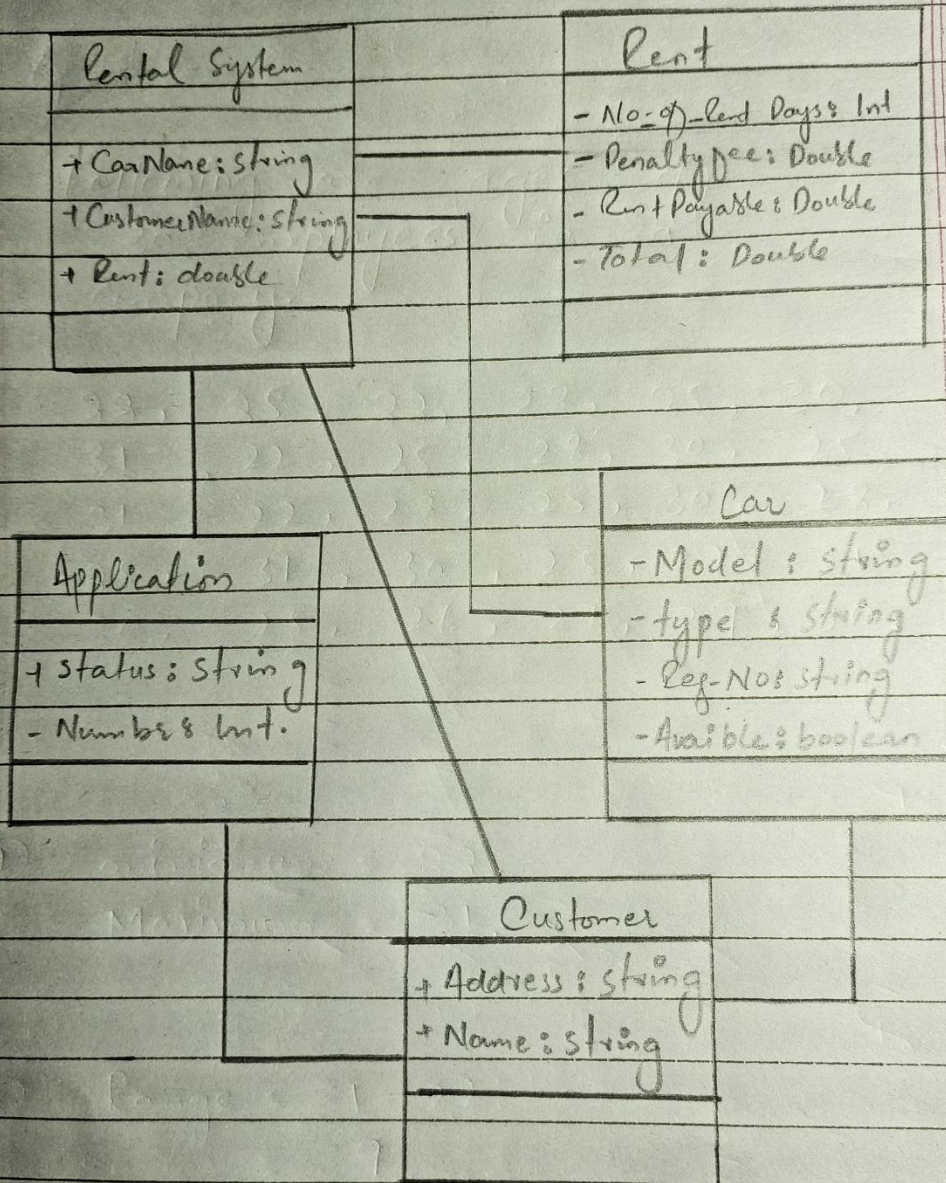 Rental System
+ CarName: string
+ CustomerName: string
+ Rent: double
Rent
- No-of-Rend Days: Int
- Penaltyfee: Double
- RentPayable: Double
- Total: Double
Application
+ Status: String
- Numbr: Int.
Car
- Model: string
- type: String
- Reg-No: string
- Avaible: boolean
Customer
+ Address: string
+ Name: string